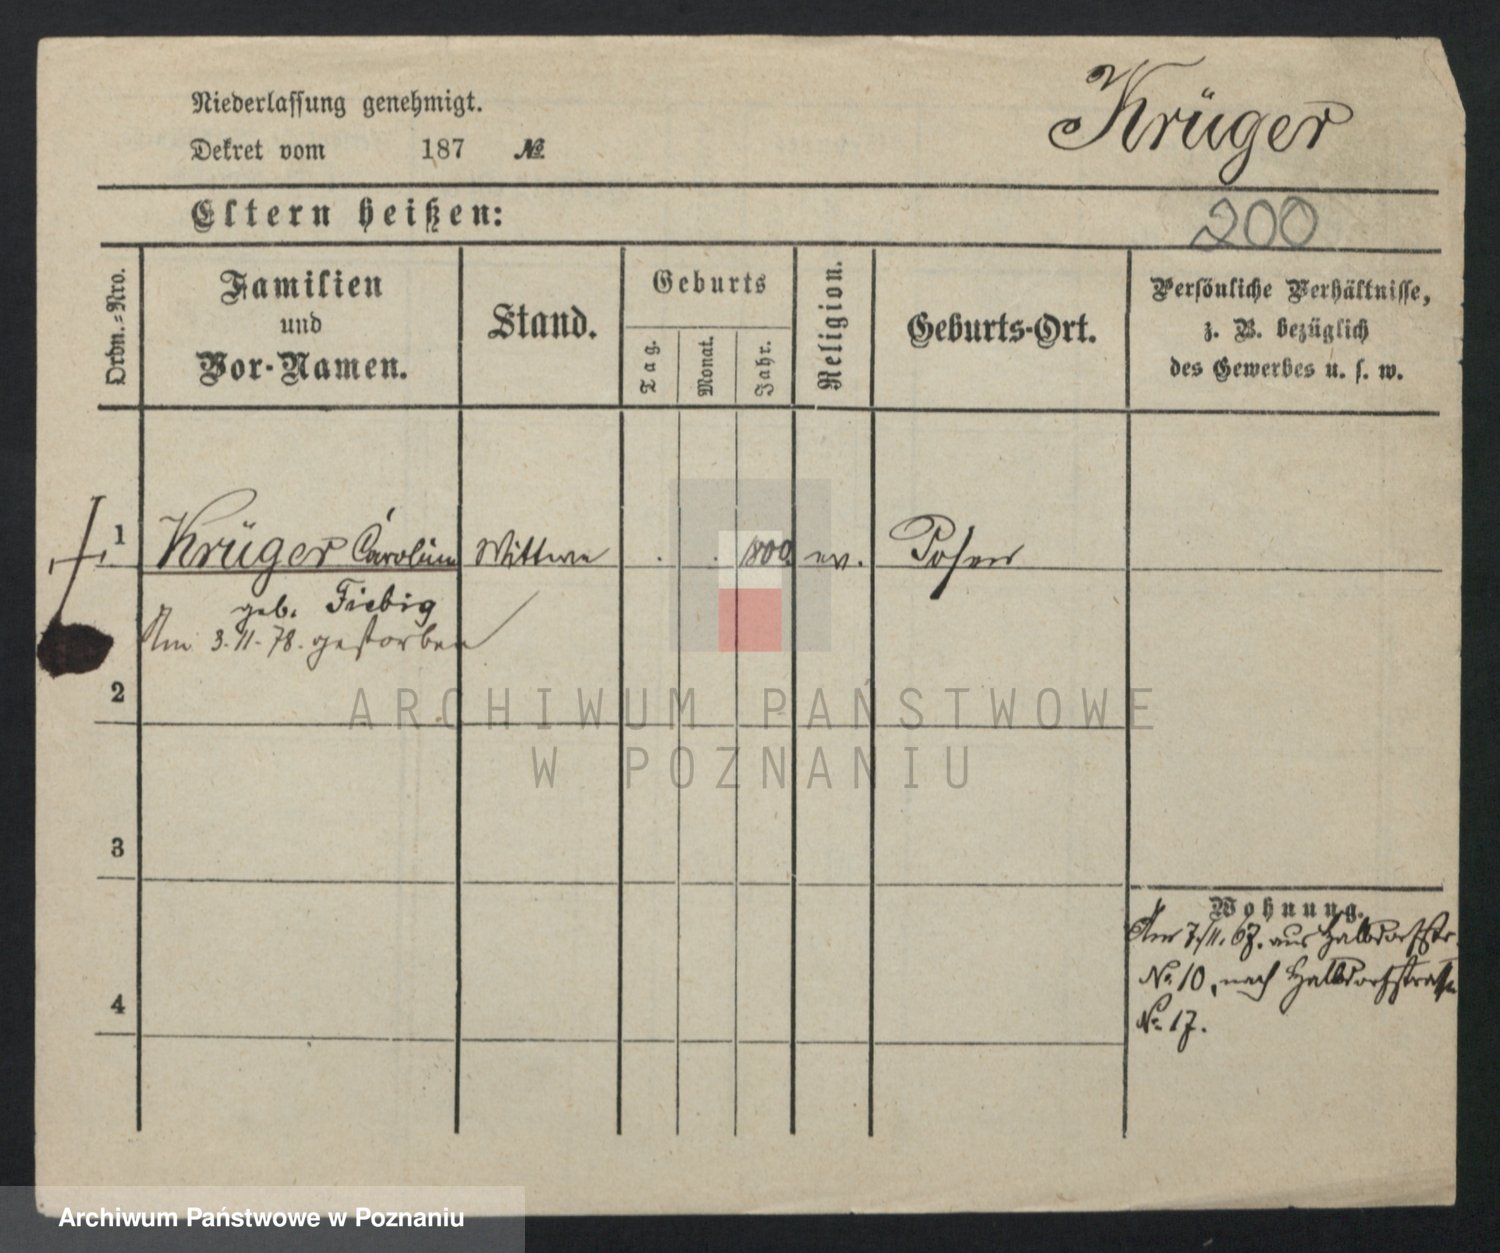 Niederlassung genehmigt.
Dekret vom 187 №
Krüger
Eltern heißen:
200
Ordn.-Nro.
Familien
und
Vor-Namen.
Stand.
Geburts
Tag.
Monat.
Jahr.
Religion.
Geburts-Ort.
Persönliche Verhältnisse,
z. B. bezüglich
des Gewerbes u. s. w.
1 Krüger Caroline Wittwe . . 800 ev. Posen
geb. Fiebig
Am 3.11.78. gestorben
2
ARCHIWUM PAŃSTWOWE
W POZNANIU
3
4
Wohnung.
Am 7./11. 67. aus Halbdorfstr.
No. 10, nach Halbdorfstrasse
No. 17.
Archiwum Państwowe w Poznaniu